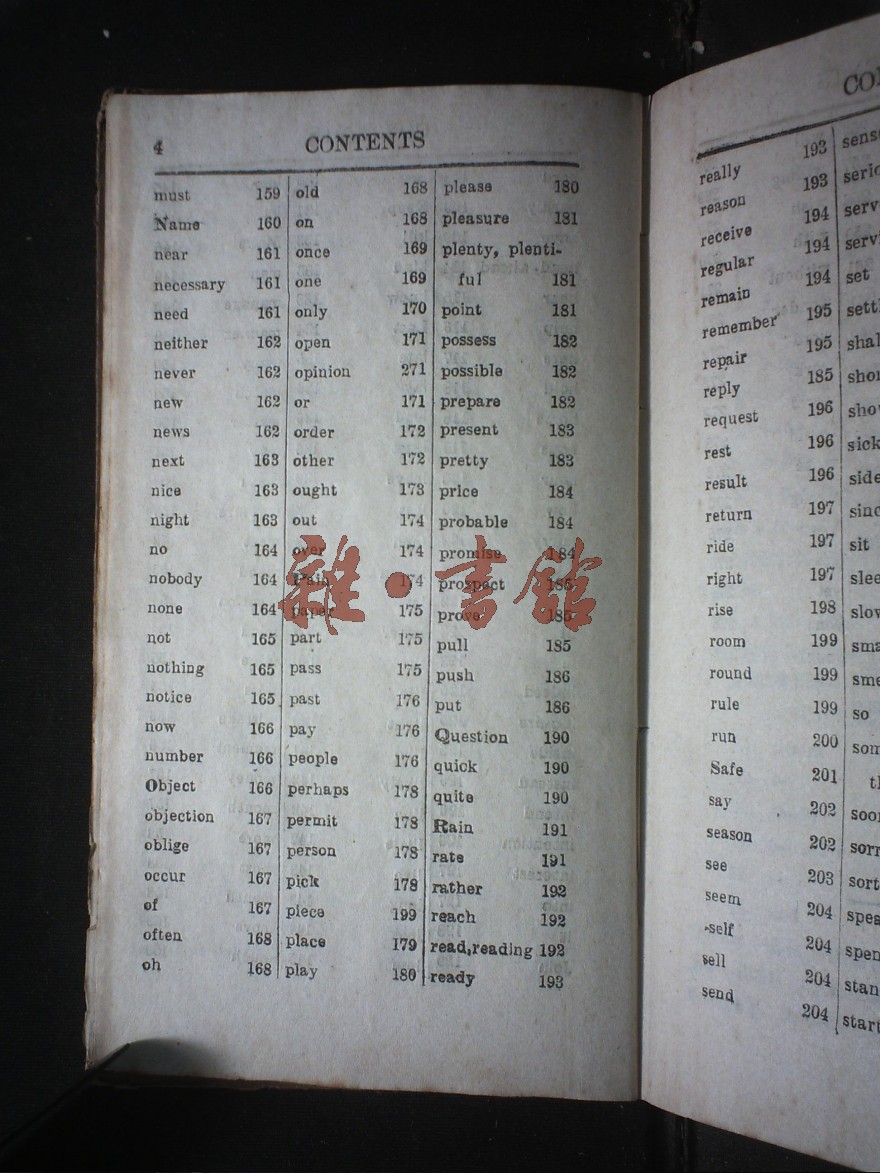 4 CONTENTS
must 159
Name 160
near 161
necessary 161
need 161
neither 162
never 162
new 162
news 162
next 163
nice 163
night 163
no 164
nobody 164
none 164
not 165
nothing 165
notice 165
now 166
number 166
Object 166
objection 167
oblige 167
occur 167
of 167
often 168
oh 168
old 168
on 168
once 169
one 169
only 170
open 171
opinion 271
or 171
order 172
other 172
ought 173
out 174
over 174
Pain 174
paper 175
part 175
pass 175
past 176
pay 176
people 176
perhaps 178
permit 178
person 178
pick 178
piece 199
place 179
play 180
please 180
pleasure 181
plenty, plenti-
ful 181
point 181
possess 182
possible 182
prepare 182
present 183
pretty 183
price 184
probable 184
promise 184
prospect 185
prove 185
pull 185
push 186
put 186
Question 190
quick 190
quite 190
Rain 191
rate 191
rather 192
reach 192
read,reading 192
ready 193
really 193
reason 193
receive 194
regular 194
remain 194
remember 195
repair 195
reply 185
request 196
rest 196
result 196
return 197
ride 197
right 197
rise 198
room 199
round 199
rule 199
run 200
Safe 201
say 202
season 202
see 203
seem 204
-self 204
sell 204
send 204
set
sick
side
sit
so
sort
start
雜·書館